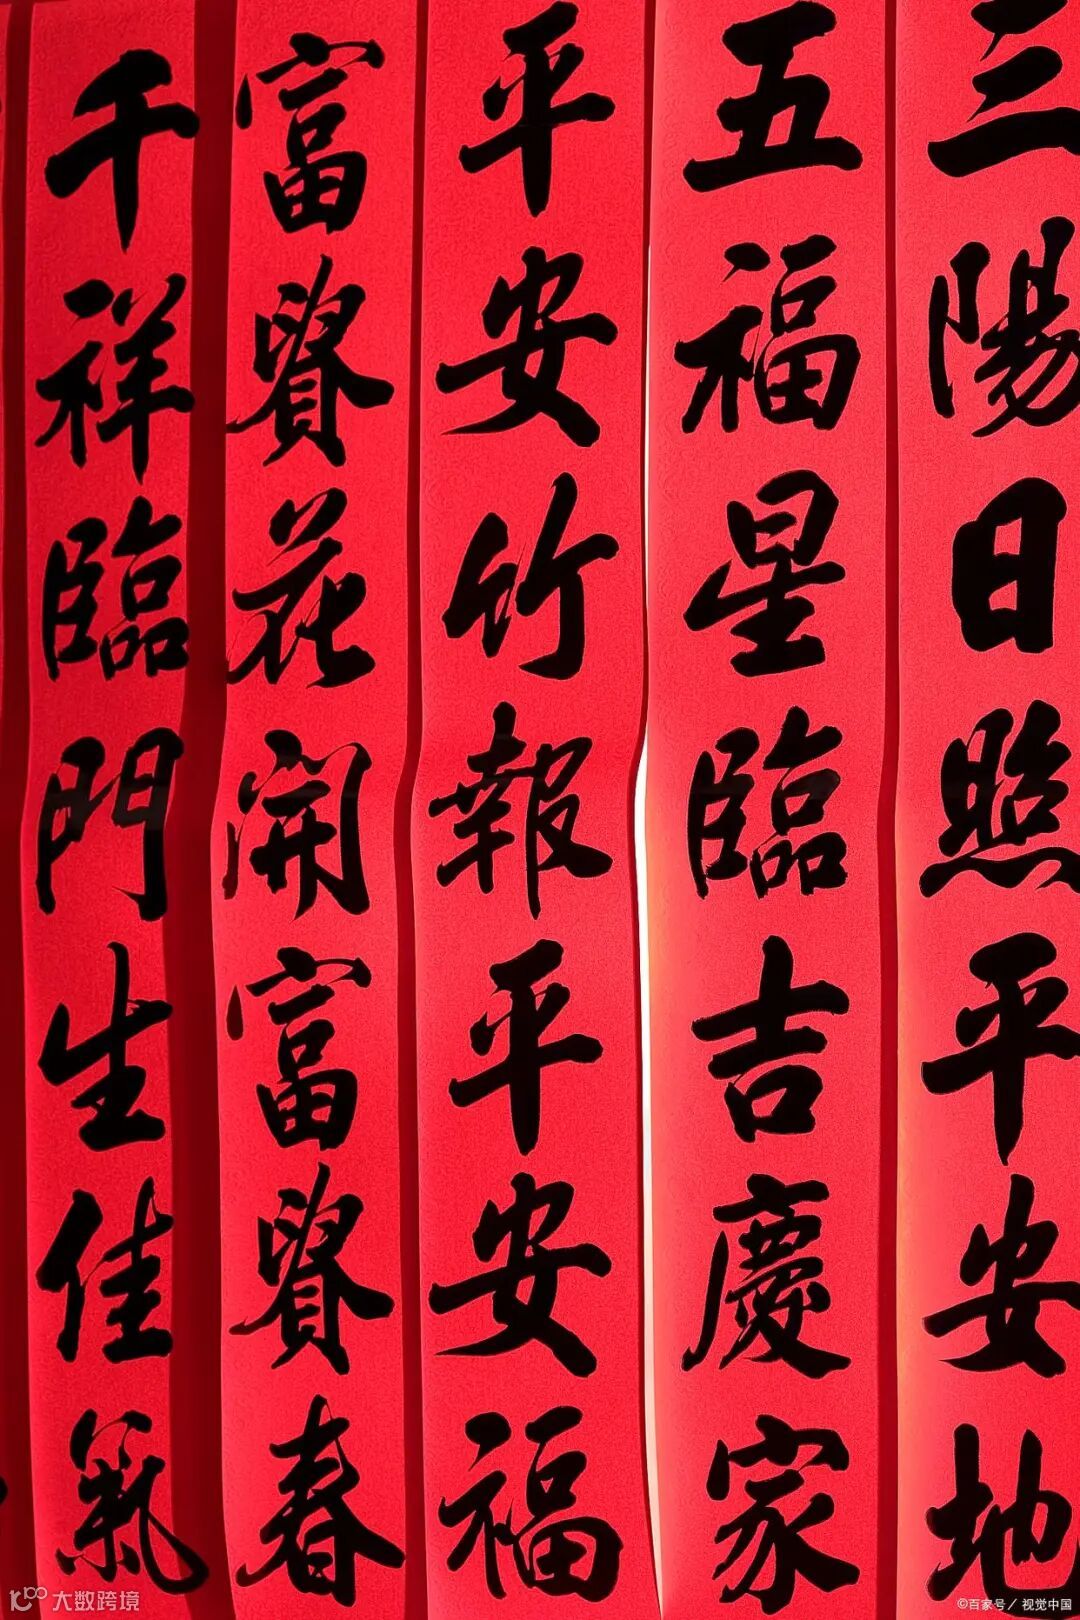 三陽日照平安地
五福星臨吉慶家
平安竹報平安福
富貴花開富貴春
千祥臨門生佳氣
大数跨境
©百家号/视觉中国